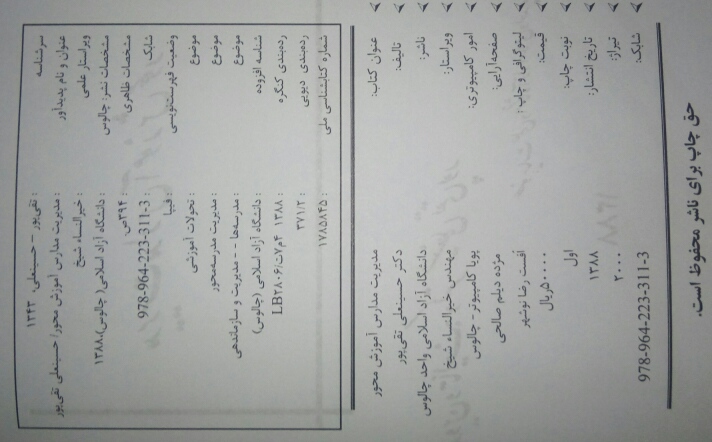 سرشناسه : تقی‌پور – حسینعلی، ۱۳۴۳
عنوان و نام پدیدآور : مدیریت مدارس آموزش محور/ حسینعلی تقی‌پور
ویراستار علمی : خیرالنساء شیخ
مشخصات نشر: چالوس : دانشگاه آزاد اسلامی (چالوس)، ۱۳۸۸.
مشخصات ظاهری : ۳۹۴ص
شابک : 978-964-223-311-3
وضعیت فهرست‌نویسی : فیپا
موضوع : تحولات آموزشی
موضوع : مدیریت مدرسه‌محور
موضوع : مدرسه‌ها -- مدیریت و سازماندهی
شناسه افزوده : دانشگاه آزاد اسلامی (چالوس)
رده‌بندی کنگره : ۱۳۸۸ ۴م۷ت/LB۲۸۰۶
رده‌بندی دیویی : ۳۷۱/۲
شماره کتابشناسی ملی : ۱۷۸۵۸۴۵
عنوان کتاب: مدیریت مدارس آموزش محور
تالیف: دکتر حسینعلی تقی‌پور
ناشر: دانشگاه آزاد اسلامی واحد چالوس
ویراستار: مهندس خیرالنساء شیخ
امور کامپیوتری: پویا کامپیوتر - چالوس
صفحه‌آرایی: مژده دیلم صالحی
لیتوگرافی و چاپ: افست رضا نوشهر
قیمت: ۵۰۰۰۰ریال
نوبت چاپ: اول
تاریخ انتشار: ۱۳۸۸
تیراژ: ۲۰۰۰
شابک: 978-964-223-311-3
حق چاپ برای ناشر محفوظ است.